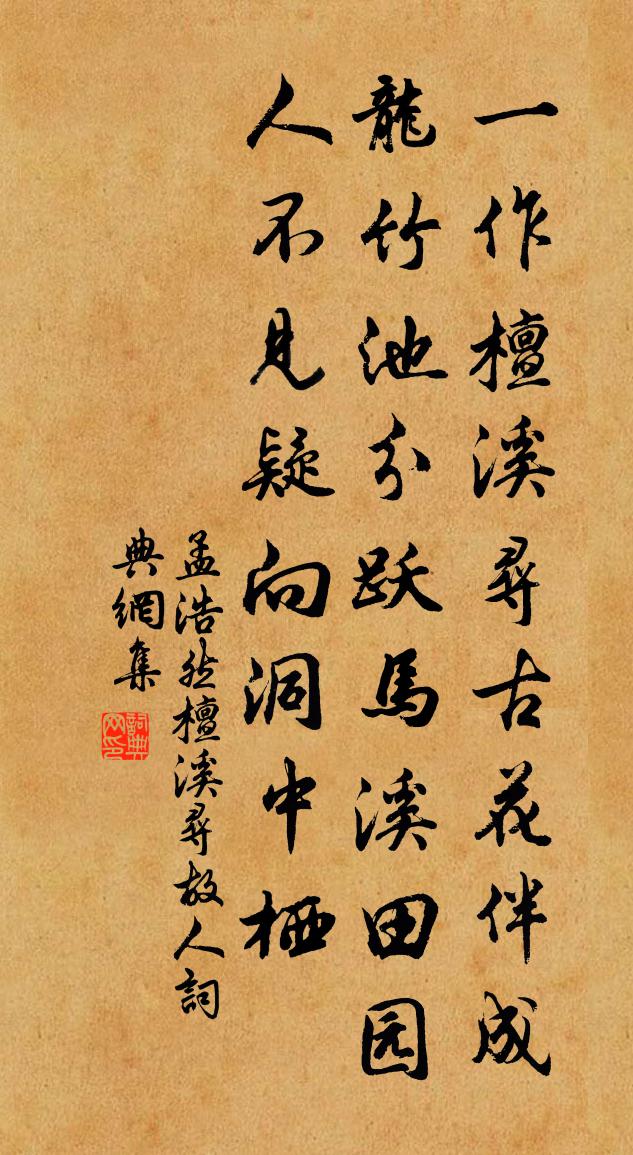 一作檀溪尋古花伴成
龍竹池分跃馬溪田园
人不見疑向洞中栖
孟浩然檀溪尋故人詞
典網集
詞典网印